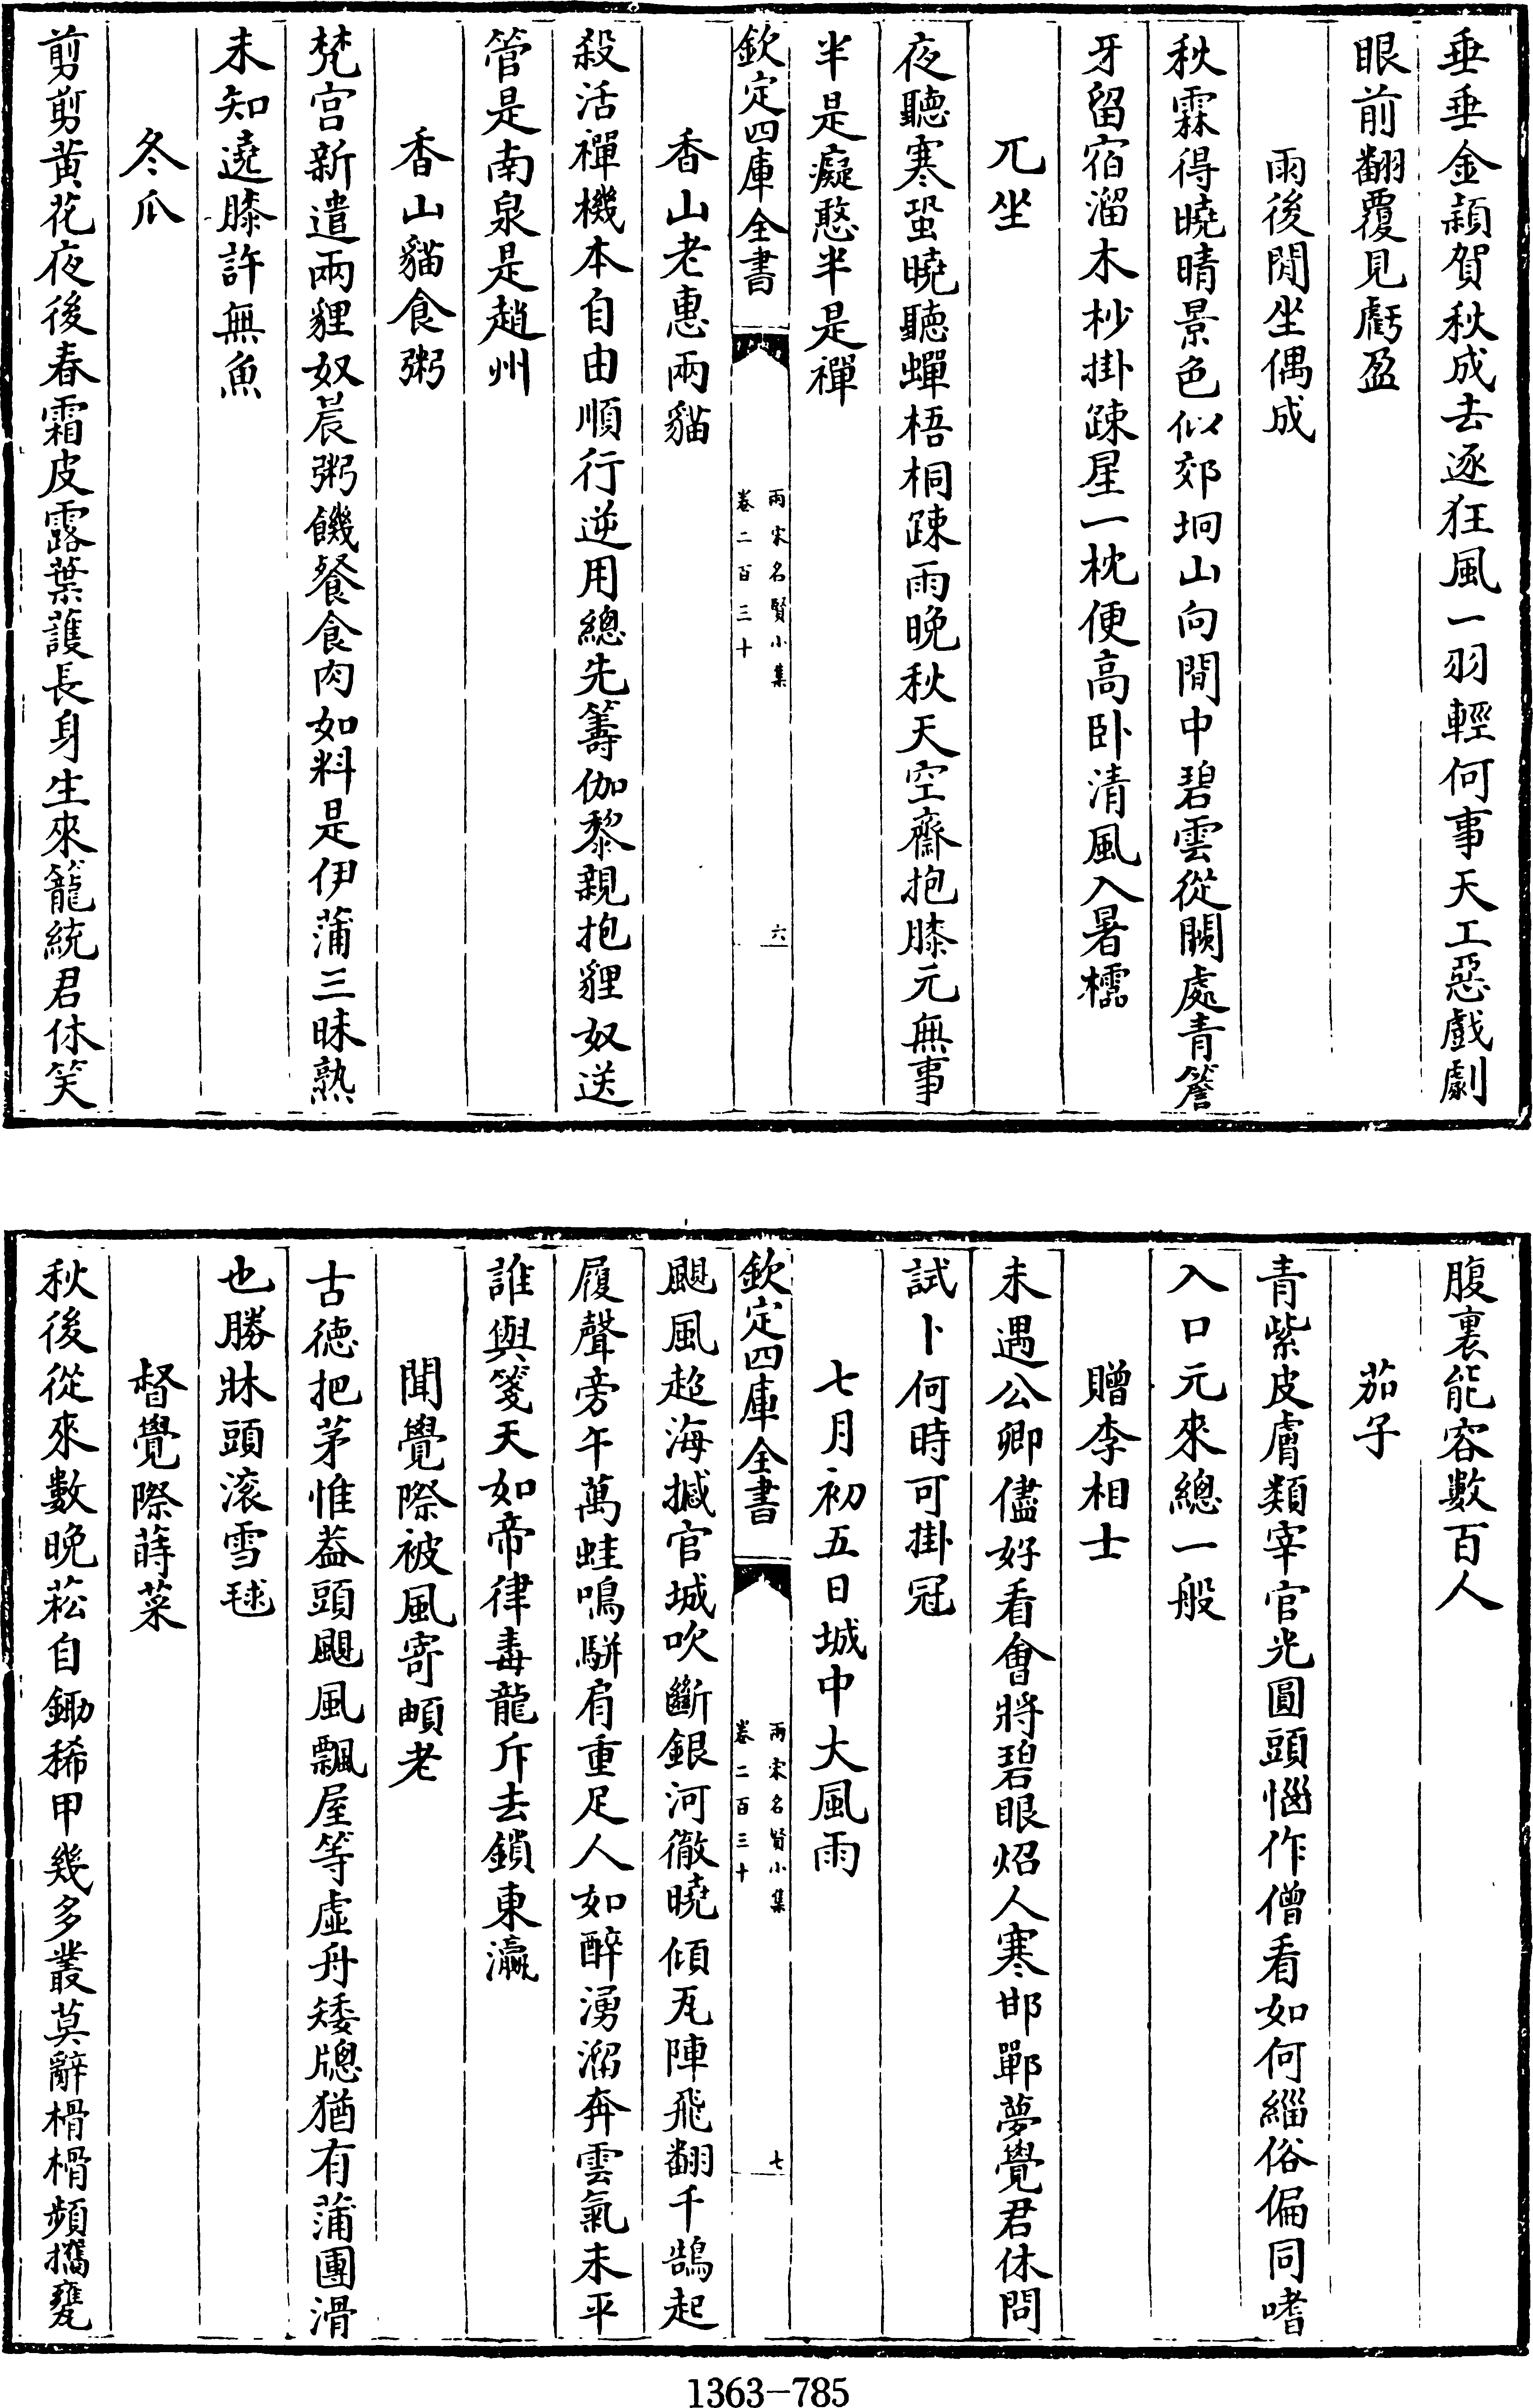 垂垂金穎賀秋成去逐狂風一羽輕何事天工惡戲劇
眼前翻覆見虧盈
雨後閒坐偶成
秋霖得曉晴景色似郊坰山向閒中碧雲從闕處青簷
牙留宿溜木杪掛疎星一枕便高卧清風入暑櫺
兀坐
夜聽寒蛩曉聽蟬梧桐疎雨晚秋天空齋抱膝元無事
半是癡憨半是禪
欽定四庫全書
兩宋名賢小集
卷二百三十
六
香山老惠兩貓
殺活禪機本自由順行逆用總先籌伽黎親抱貍奴送
管是南泉是趙州
香山貓食粥
梵宫新遣兩貍奴晨粥饑餐食肉如料是伊蒲三昧熟
未知遶膝許無魚
冬瓜
剪剪黄花夜後春霜皮露葉護長身生來籠統君休笑
腹裏能容數百人
茄子
青紫皮膚類宰官光圓頭惱作僧看如何緇俗偏同嗜
入口元來總一般
贈李相士
未遇公卿儘好看會將碧眼炤人寒邯鄲夢覺君休問
試卜何時可掛冠
七月初五日城中大風雨
欽定四庫全書
兩宋名賢小集
卷二百三十
七
颶風超海撼官城吹斷銀河徹曉傾瓦陣飛翻千鵠起
履聲旁午萬蛙鳴駢肩重足人如醉湧溜奔雲氣未平
誰與箋天如帝律毒龍斥去鎖東瀛
聞覺際被風寄頔老
古德把茅惟葢頭颶風飄屋等虛舟矮牕猶有蒲團滑
也勝牀頭滚雪毬
督覺際蒔菜
秋後從來數晚菘自鋤稀甲幾多叢莫辭榾榾頻攜甕
1363-785